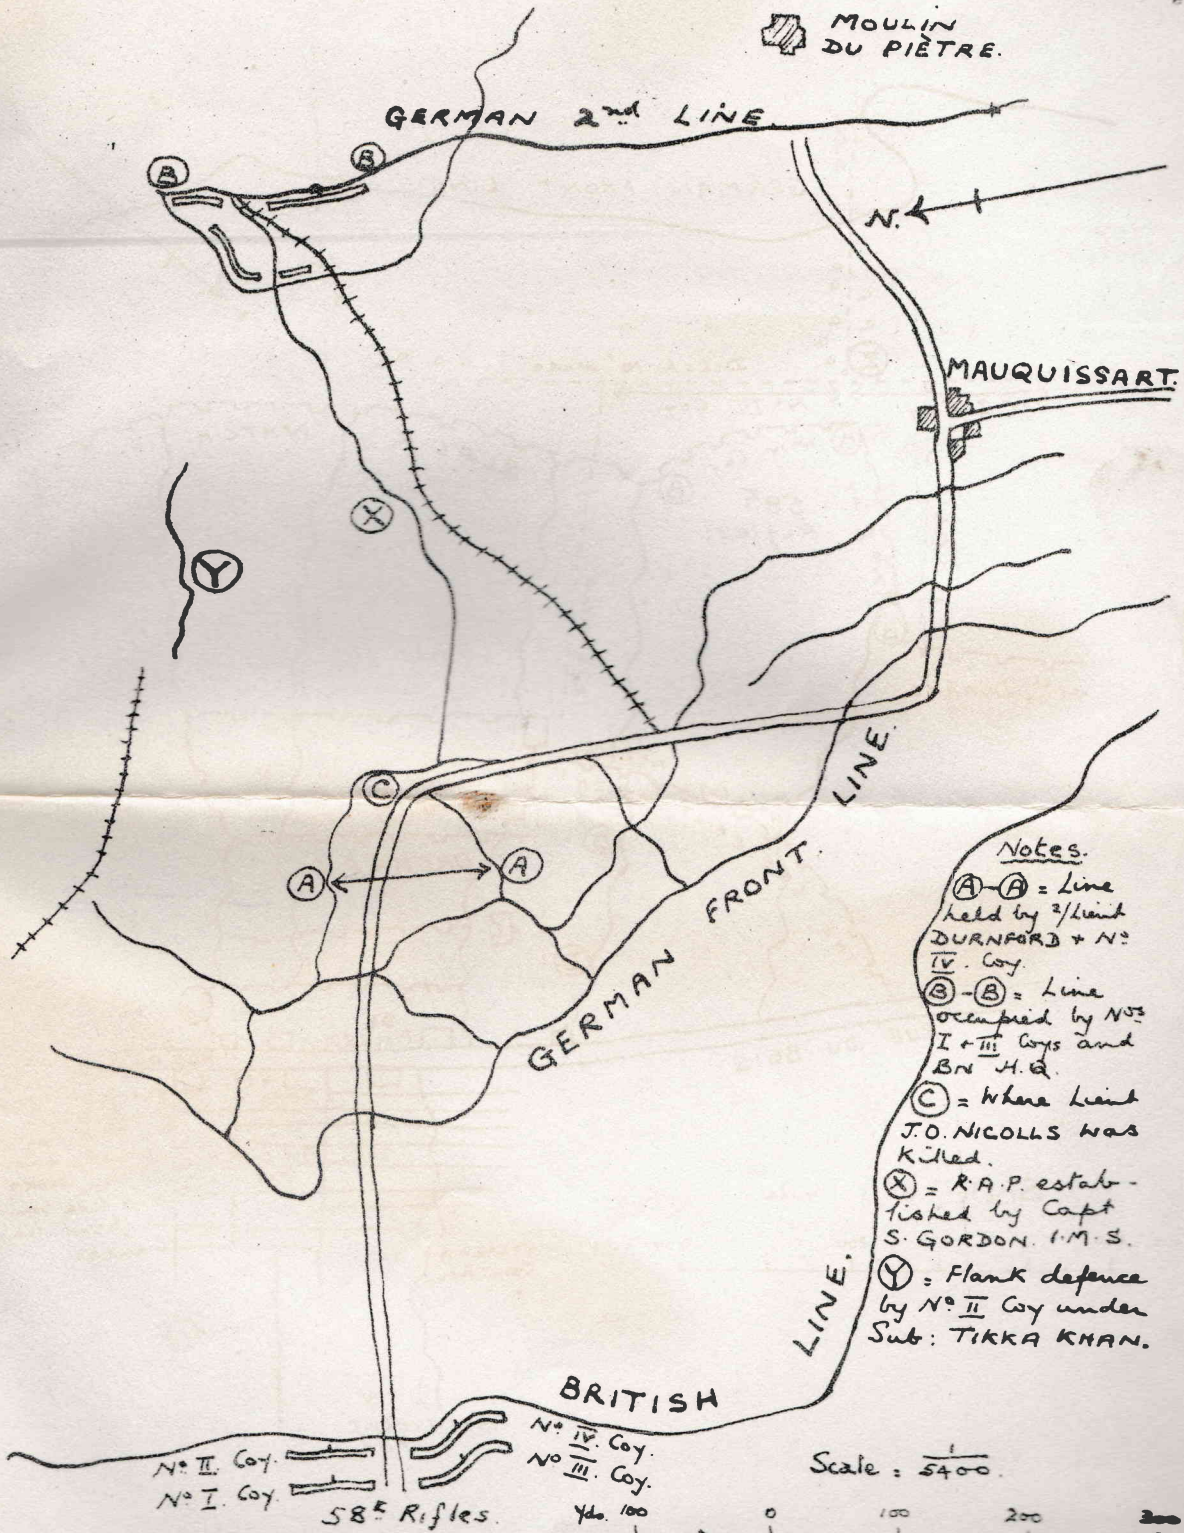 MOULIN
DU PIÈTRE.
GERMAN 2nd LINE.
B
B
N.
MAUQUISSART.
X
Y
C
A
A
GERMAN FRONT LINE.
Notes.
A-A = Line
held by 2/Lieut
DURNFORD + No
IV. Coy.
B-B = Line
occupied by Nos
I + III Coys and
BN H.Q.
C = Where Lieut
J.O. NICOLLS was
killed.
X = R.A.P. estab-
lished by Capt
S. GORDON. I.M.S.
Y = Flank defence
by No II Coy under
Sub: TIKKA KHAN.
BRITISH LINE.
No II. Coy.
No I. Coy.
No IV. Coy.
No III. Coy.
58th Rifles.
Scale = 1/5400.
Yds. 100 0 100 200 300